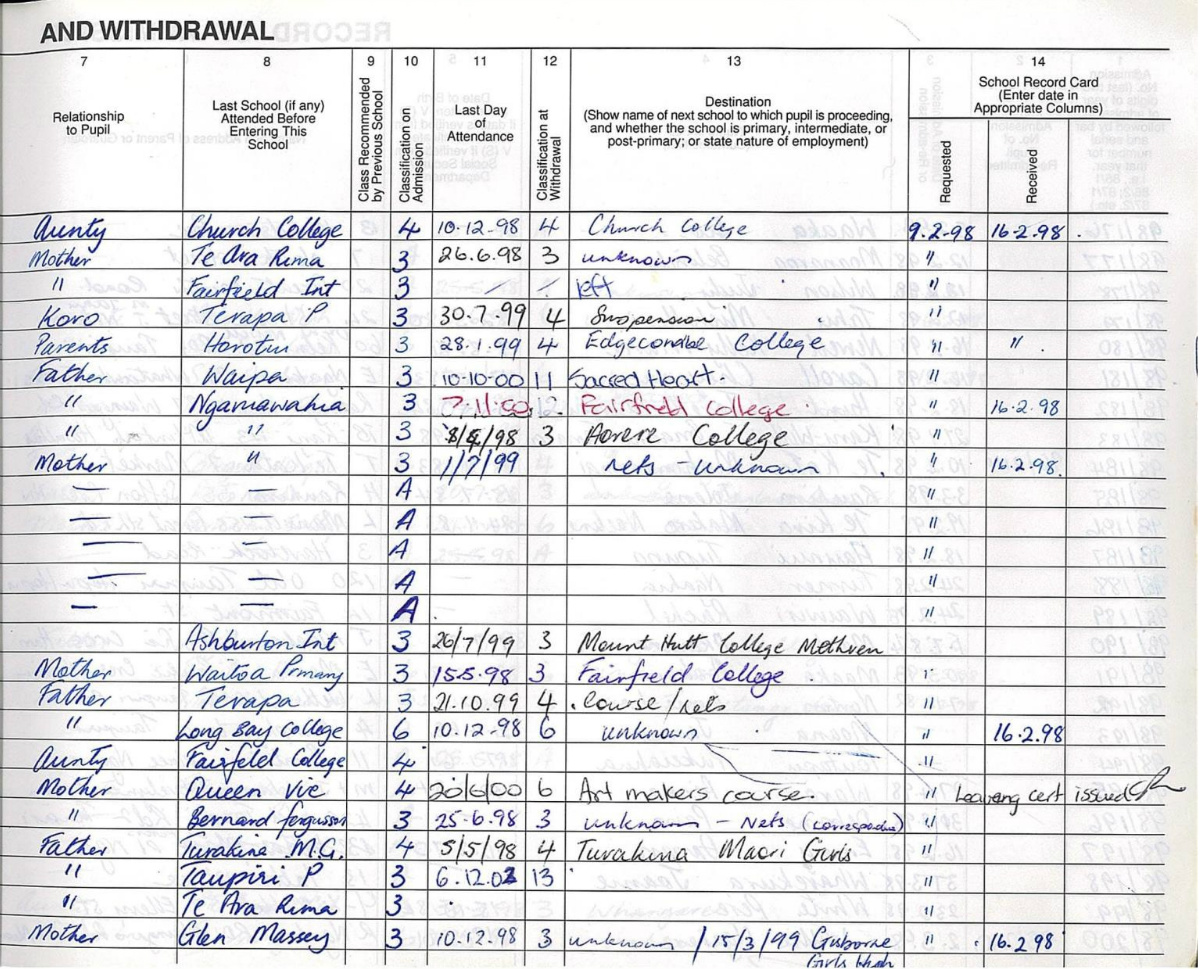 AND WITHDRAWAL
7 8 9 10 11 12 13 14
Relationship to Pupil
Last School (if any) Attended Before Entering This School
Class Recommended by Previous School
Classification on Admission
Last Day of Attendance
Classification at Withdrawal
Destination
(Show name of next school to which pupil is proceeding, and whether the school is primary, intermediate, or post-primary; or state nature of employment)
School Record Card
(Enter date in Appropriate Columns)
Requested
Received
Aunty Church College 4 10.12.98 4 Church College 9.2.98 16.2.98
Mother Te Ara Rima 3 26.6.98 3 unknown "
" Fairfield Int 3 left "
Koro Terapa P 3 30.7.99 4 Suspension "
Parents Horotiu 3 28.1.99 4 Edgecombe College " "
Father Waipa 3 10.10.00 11 Sacred Heart. "
" Ngaruawahia 3 7.11.00 12 Fairfield College " 16.2.98
" " 3 98 3 Aorere College "
Mother " 3 1/7/99 nets - unknown " 16.2.98.
— — A "
— — A "
— — A "
— — A "
— — A "
Ashburton Int 3 26/7/99 3 Mount Hutt College Methven "
Mother Waitoa Primary 3 15.5.98 3 Fairfield College "
Father Terapa 3 21.10.99 4 Course/nets "
" Long Bay College 6 10.12.98 6 unknown " 16.2.98
Aunty Fairfield College 4 "
Mother Queen Vic 4 20/6/00 6 Art makers course. " Leaving cert issued
" Bernard fergusson 3 25.6.98 3 unknown - Nets "
Father Turakina M.G. 4 5/5/98 4 Turakina Maori Girls "
" Taupiri P 3 6.12.02 13 "
" Te Ara Rima 3 "
Mother Glen Massey 3 10.12.98 3 unknown / 15/3/99 Gisborne " 16.2.98
Girls High